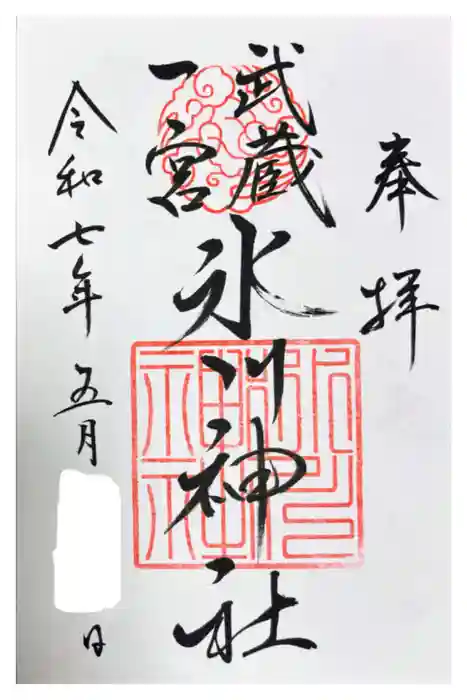 奉拝
武蔵
一宮
氷川神社
令和七年五月 日
氷川神社